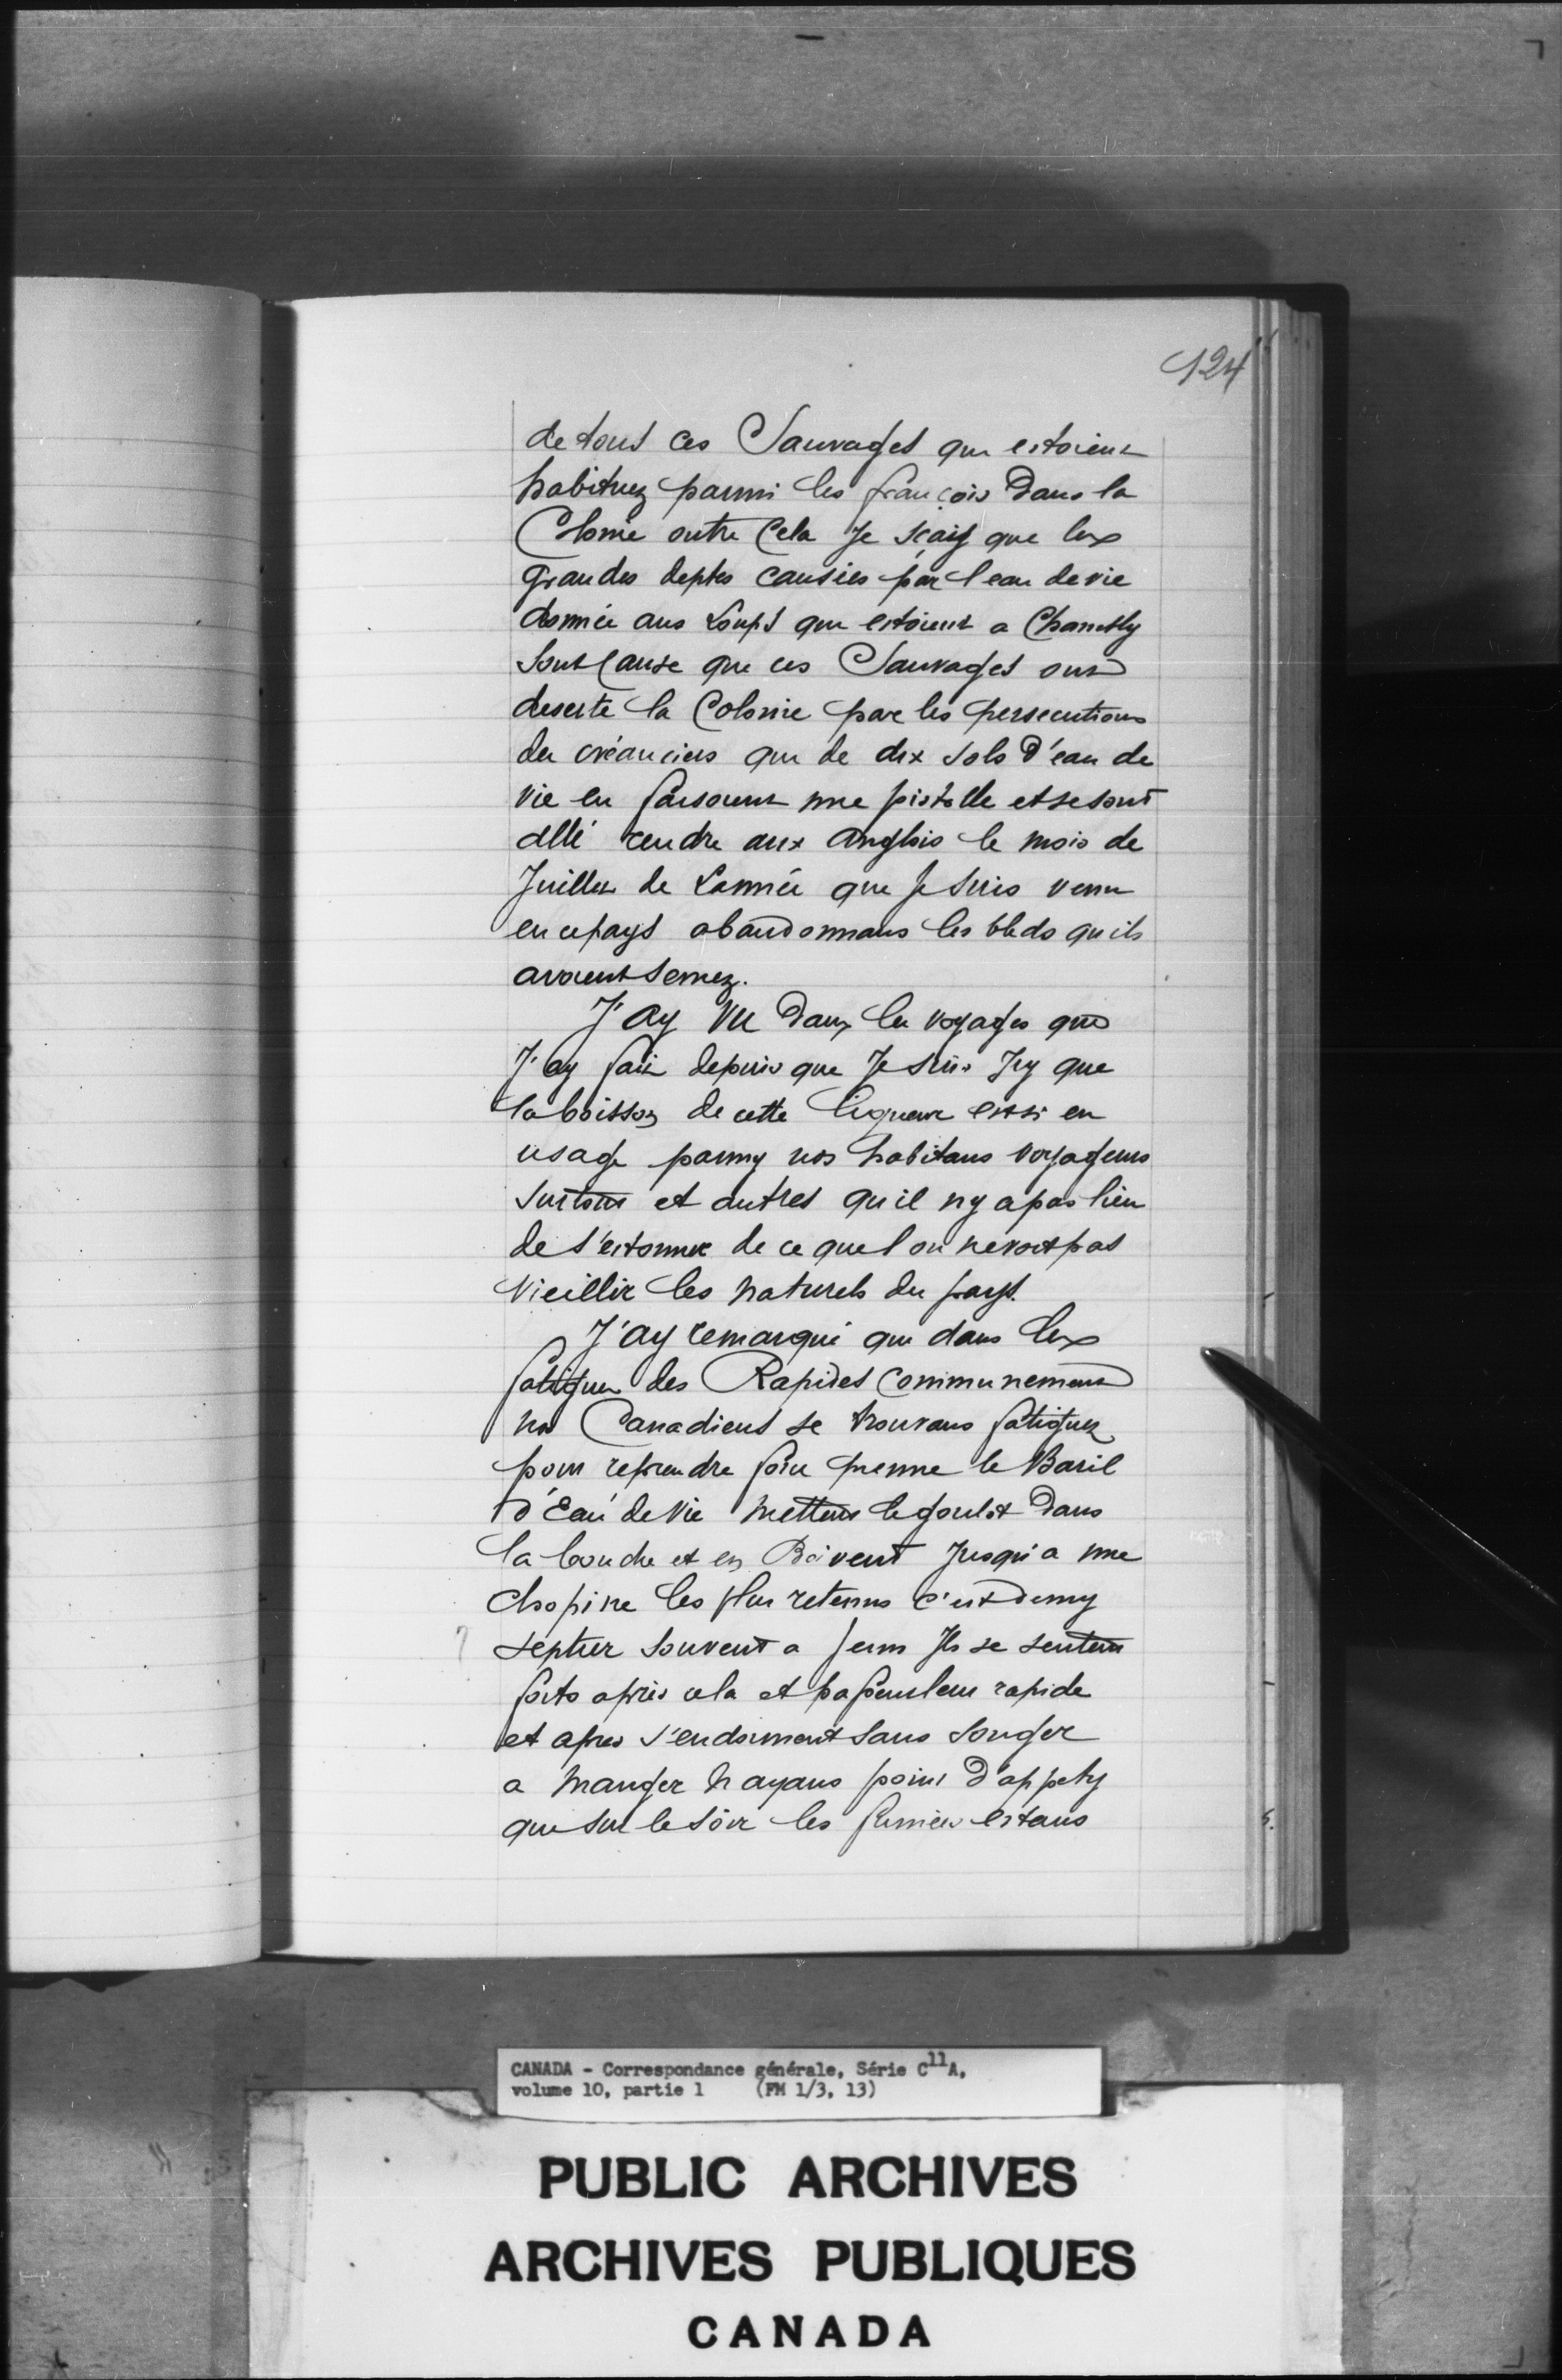 124
de tous ces Sauvages qui estoient
habituez parmi les françois Dans la
Colonie outre Cela Je sçay que les
grandes deptes causées par l'eau de vie
donnée aus Loups qui estoient a Chambly
Sont Cause que ces Sauvages ont
deserté la Colonie par les persecutions
des créanciers qui de dix sols d'eau de
vie en faisoient une pistolle et se sont
allé rendre aux anglois le mois de
Juillet de L'année que Je suis venu
en ce pays abandonnans les bleds qu'ils
avoient semez.
J'ay vu Dans les voyages que
J'ay fait depuis que Je suis Icy que
la boisson de cette liqueur est si en
usage parmy nos habitans voyageurs
surtout et autres qu'il n'y a pas lieu
de s'estonner de ce que l'on ne voit pas
vieillir les naturels du pays.
J'ay remarqué que dans les
fatigues des Rapides communement
nos Canadiens se trouvans fatiguez
pour reprendre force prenne le Baril
d'Eau de Vie mettent le goulot Dans
la bouche et en Boivent Jusqu'a une
chopine les plus retenus c'est demy
? septier souvent a jeun Ils se sentent
forts après cela et passent leur rapide
et apres s'endorment sans songer
a manger n'ayans point D'appety
que sur le soir les fumées estans
CANADA - Correspondance générale, Série C11A,
volume 10, partie 1 (FM 1/3, 13)
PUBLIC ARCHIVES
ARCHIVES PUBLIQUES
CANADA